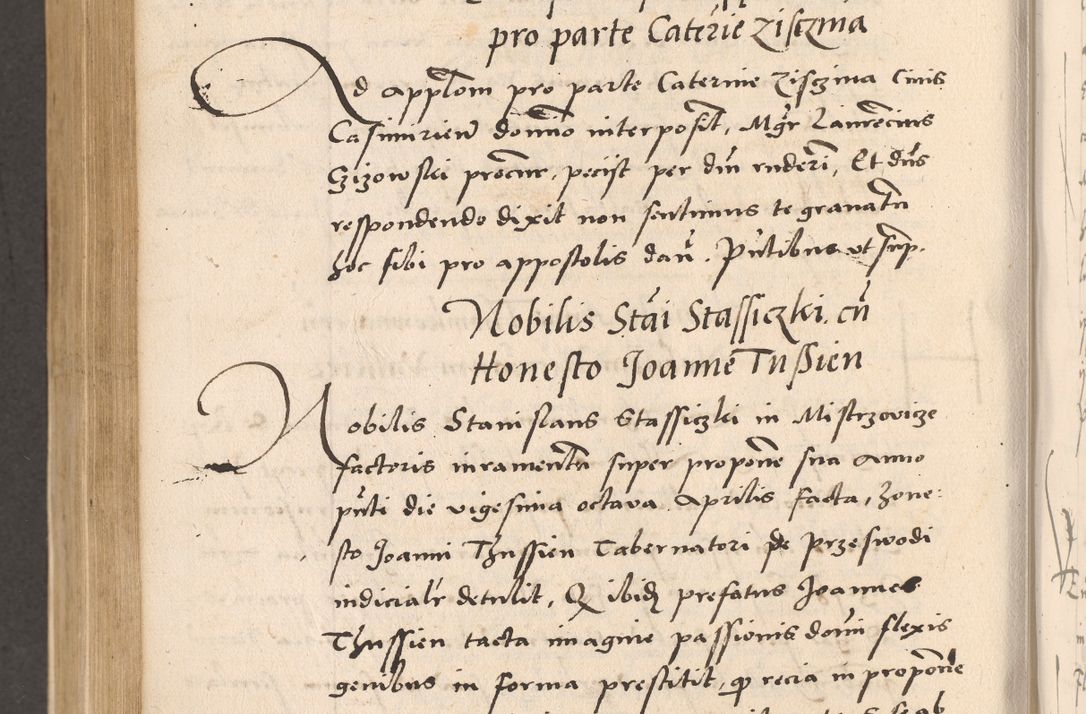 pro parte Cateriē Ziszma
Ad applōm pro parte Caterine Ziszma Civis
Casimirieñ domō interposit̃, Mgr̃ Laurẽcius
Czizowski procur̃, peciit per dm̃ rnderi, Et dñs
respondendo dixit non sentimus te gravatũ
hoc sibi pro appostolis dari. Pñtibus ut sup̃.
Nobilis Stãi Stassiczki cũ
Honesto Joanne Tussien
Nobilis Stanislaus Stassiczki in Mistrzovicze
factoris iuramentũ super propone sua Anno
pñti die vigesima octava Aprilis facta, hone:
sto Joanni Thussien Tabernatori de Przeswodi
indicialr̃ detulit, Q ibid prefatus Joannes
Thussien tacta imagine passionis domĩ flexis
genibus in forma prestitit, qp recia in propone